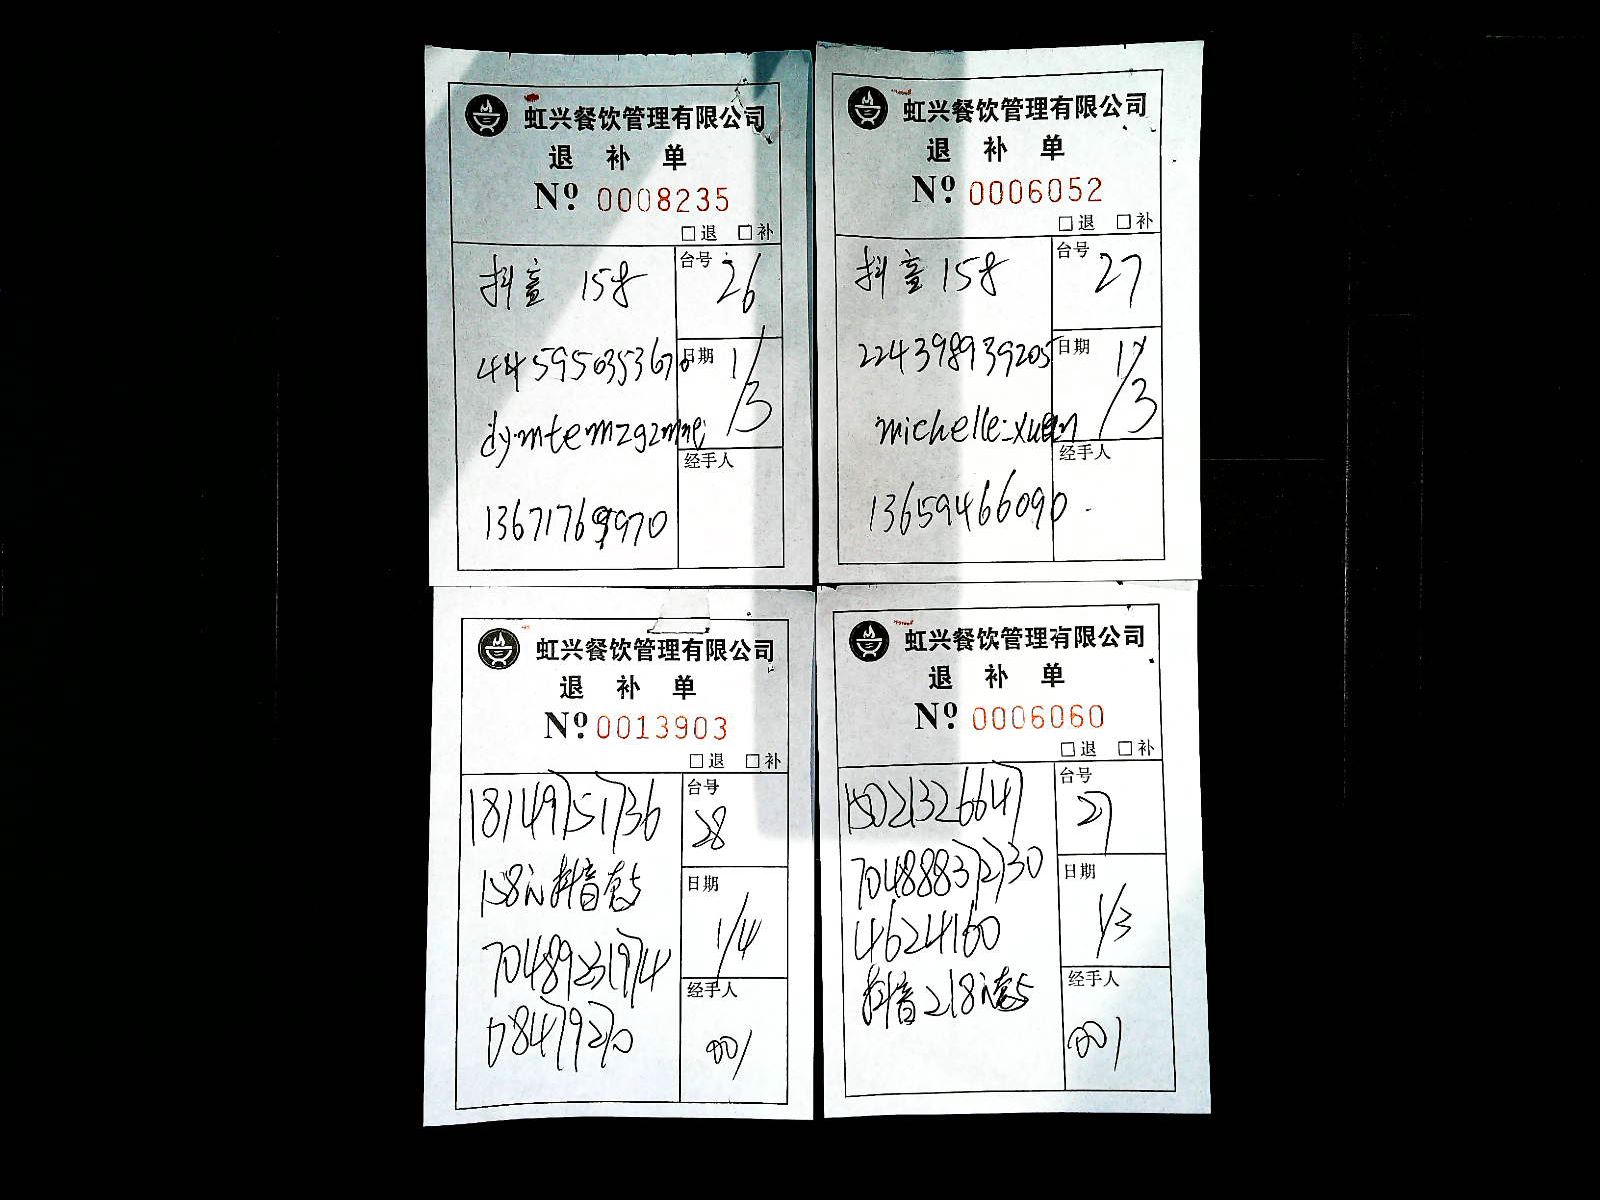 虹兴餐饮管理有限公司
退 补 单
Nº 0008235
□退 □补
抖音 158
台号 26
445950353670
日期 1/3
经手人
虹兴餐饮管理有限公司
退 补 单
Nº 0006052
□退 □补
抖音 158
台号 27
224398939205
日期 1/3
michelle-xuen
经手人
13659466090
虹兴餐饮管理有限公司
退 补 单
Nº 0013903
□退 □补
18149751736
台号 28
158元抖音套
日期 1/4
70489231974
经手人 001
虹兴餐饮管理有限公司
退 补 单
Nº 0006060
□退 □补
15021326647
台号 27
70488837230
日期 1/3
4624160
抖音218元套
经手人 001